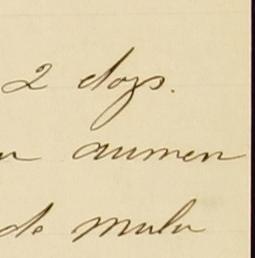 2 dogs.
aumen
de mula